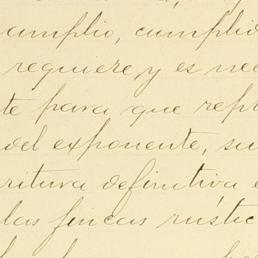 amplio, cumplid
requiere y es nec
te para que repr
del exponente, su
ritura definitiva e
las fincas rústic